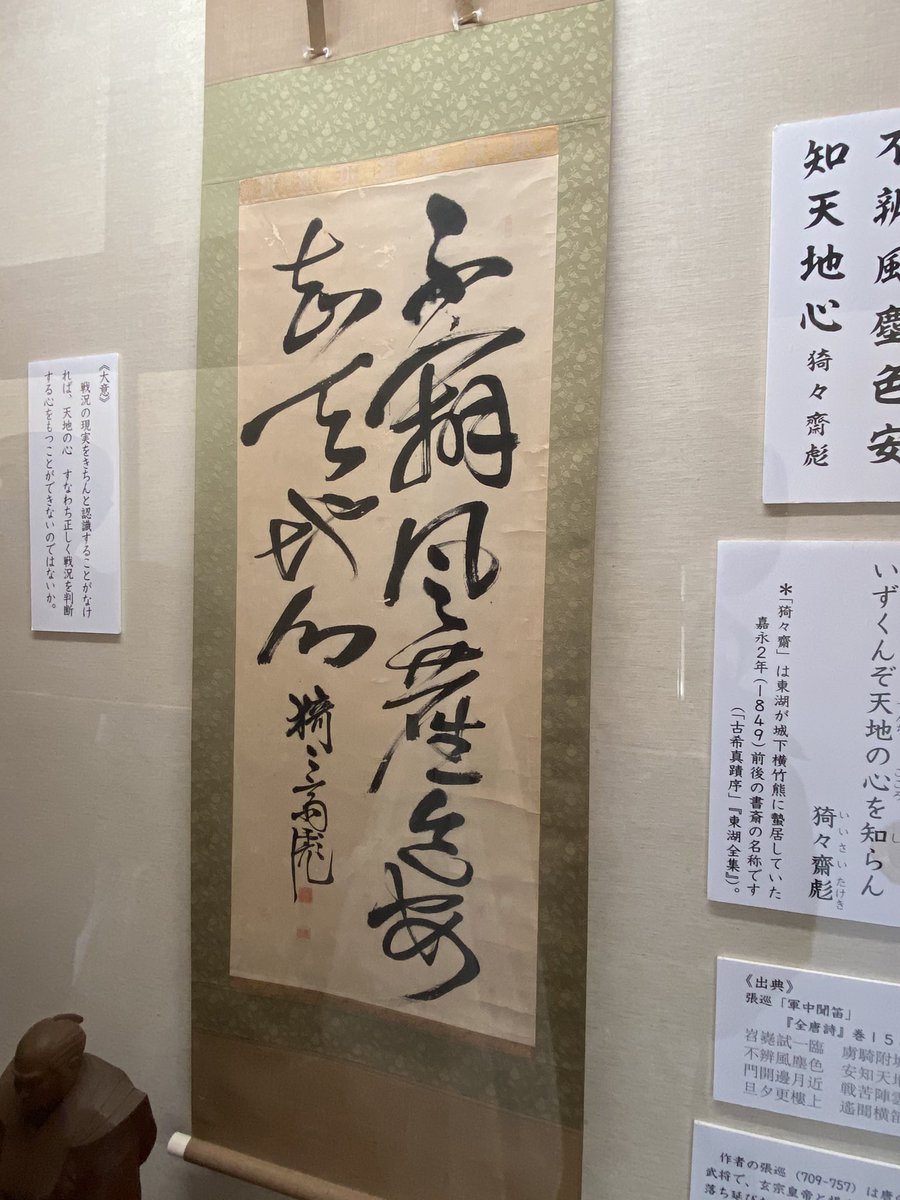 不辨風塵色安
知天地心
猗々齋彪
不辨風塵色安
知天地心 猗々齋彪
いずくんぞ天地の心を知らん
猗々齋彪
いいさいたけき
*「猗々齋」は東湖が城下横竹熊に蟄居していた
嘉永2年(1849)前後の書斎の名称です
(「古希真蹟序」『東湖全集』)。
《出典》
張巡「軍中聞笛」
『全唐詩』巻15
岧嶤試一臨 虜騎附
不辨風塵色 安知天地
門開邊月近 戦苦陣雲
旦夕更樓上 遙聞横笛
作者の張巡 (709-757) は唐
武将で、玄宗皇帝
落ち延び
《大意》
戦況の現実をきちんと認識することがなけ
れば、天地の心 すなわち正しく戦況を判断
する心をもつことができないのではないか。